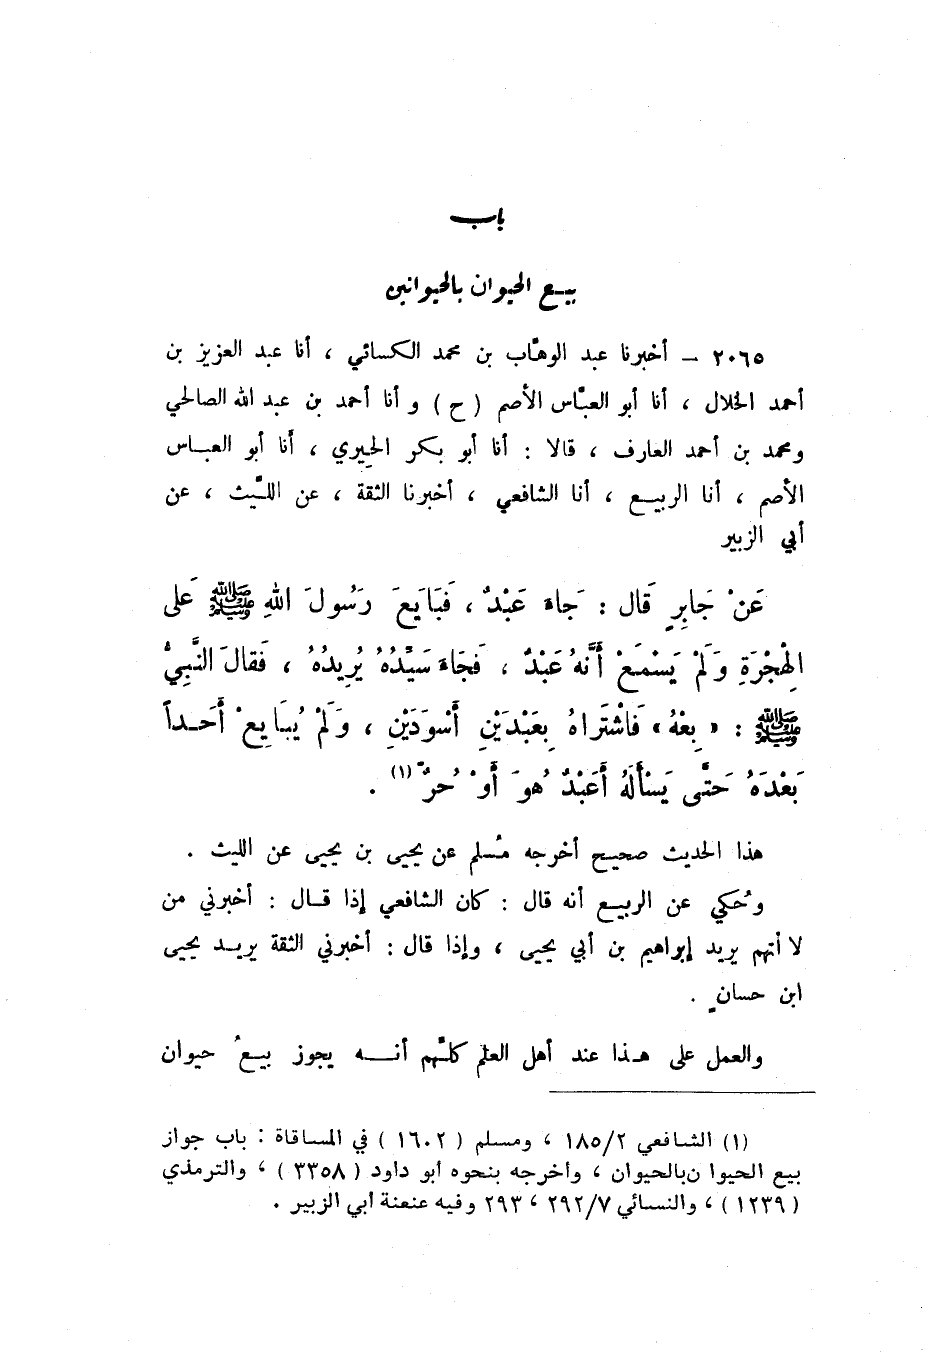 باب
بيع الحيوان بالحيوانين
٢٠٦٥ – أخبرنا عبد الوهَّاب بن محمد الكسائي ، أنا عبد العزيز بن
أحمد الخلال ، أنا أبو العبَّاس الأصم ( ح ) و أنا أحمد بن عبد الله الصالحي
ومحمد بن أحمد العارف ، قالا : أنا أبو بكر الحِيري ، أَنا أبو العباس
الأصم ، أنا الربيع ، أنا الشافعي ، أخبرنا الثقة ، عن اللَّيث ، عن
أبي الزبير
عَنْ جَابِرٍ قَال : جَاءَ عَبْدٌ ، فَبَايَعَ رَسُولَ اللهِ ﷺ عَلى
الهِجْرَةِ وَلَمْ يَسْمَعْ أَنَّهُ عَبْدٌ ، فَجَاءَ سَيِّدُهُ يُرِيدُهُ ، فَقالَ النَّبِيُّ
ﷺ : « بِعْهُ » فَاشْتَراهُ بِعَبْدَيْنِ أَسْوَدَيْنِ ، وَلَمْ يُبَايِعْ أَحَداً
بَعْدَهُ حَتَّى يَسْأَلَهُ أَعَبْدٌ هُوَ أَوْ حُرٌّ (١) .
هذا الحديث صحيح أخرجه مُسلم عن يحيى بن يحيى عن الليث .
وحُكي عن الربيع أنه قال : كان الشافعي إذا قال : أخبرني من
لا أتهم يريد إبراهيم بن أبي يحيى ، وإذا قال : أخبرني الثقة يريد يحيى
ابن حسانٍ .
والعمل على هذا عند أهل العلم كلِّهم أنه يجوز بيعُ حيوان
(١) الشافعي ١٨٥/٢ ، ومسلم ( ١٦٠٢ ) في المساقاة : باب جواز
بيع الحيوا نبالحيوان ، وأخرجه بنحوه أبو داود ( ٣٣٥٨ ) ، والترمذي
( ١٢٣٩ ) ، والنسائي ٢٩٢/٧ ، ٢٩٣ وفيه عنعنة أبي الزبير .